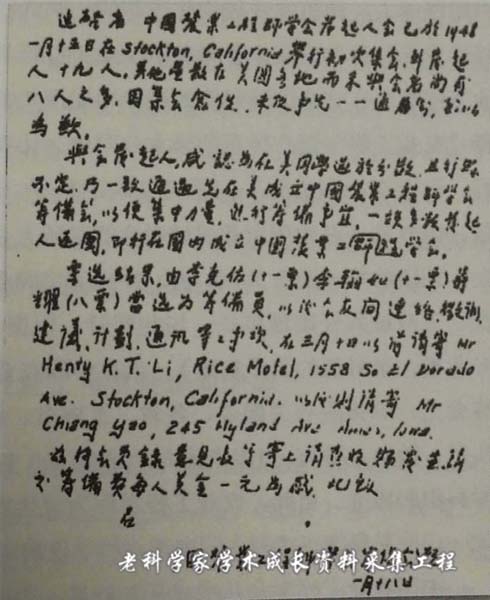 逕啟者 中國農業工程師学会發起人会已於1948
一月十五日在 Stockton, California 舉行初次集会,到發起
人十九人,其他畢散在美國各地而未與会者尚有
八人之多,因集会倉促,未及事先一一通知,至以
為歉。
與会發起人,咸認為在美同學過於分散,且行踪
不定,乃一致通過先在美成立中國農業工程師学会
籌備会,以便集中力量,進行籌備事宜,一旦多数發起
人返國,即行在國内成立中國農業工程師学会。
票选結果,由李克佐(十一票)李翰如(十一票)蔣
耀(八票)當选為籌備員,以后会友間連絡
建議,計劃,通訊等事項,在三月十日以前請寄 Mr
Henry K. T. Li, Rice Motel, 1558 So El Dorado
Ave. Stockton, California. 以後則請寄 Mr
Chiang Yao, 245 Hyland Ave Ames, Iowa.
兹付会員錄意見表等寄上請查收填寄並請
交籌備費每人美金一元為感 此致
君
中國農業工程師学会籌備会啟
一月十八日
老科学家学术成长资料采集工程